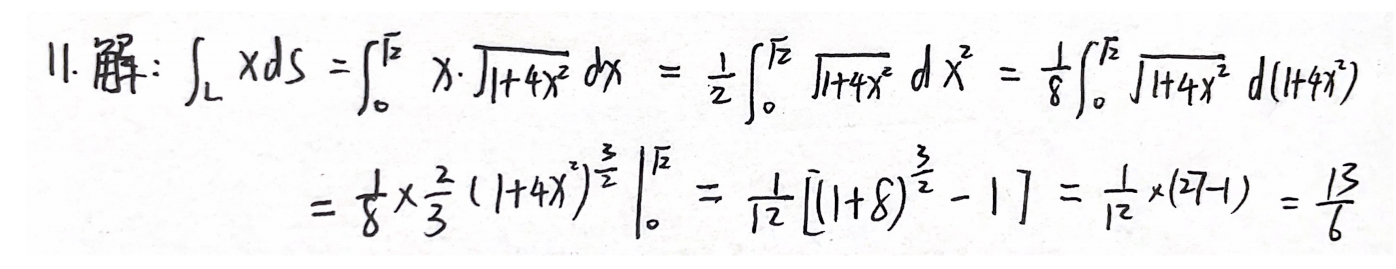 11. 解: ∫_L x ds = ∫_0^{√2} x·√(1+4x²) dx = 1/2 ∫_0^{√2} √(1+4x²) d x² = 1/8 ∫_0^{√2} √(1+4x²) d(1+4x²)
= 1/8 × 2/3 (1+4x²)^{3/2} |_0^{√2} = 1/12 [(1+8)^{3/2} - 1] = 1/12 × (27-1) = 13/6